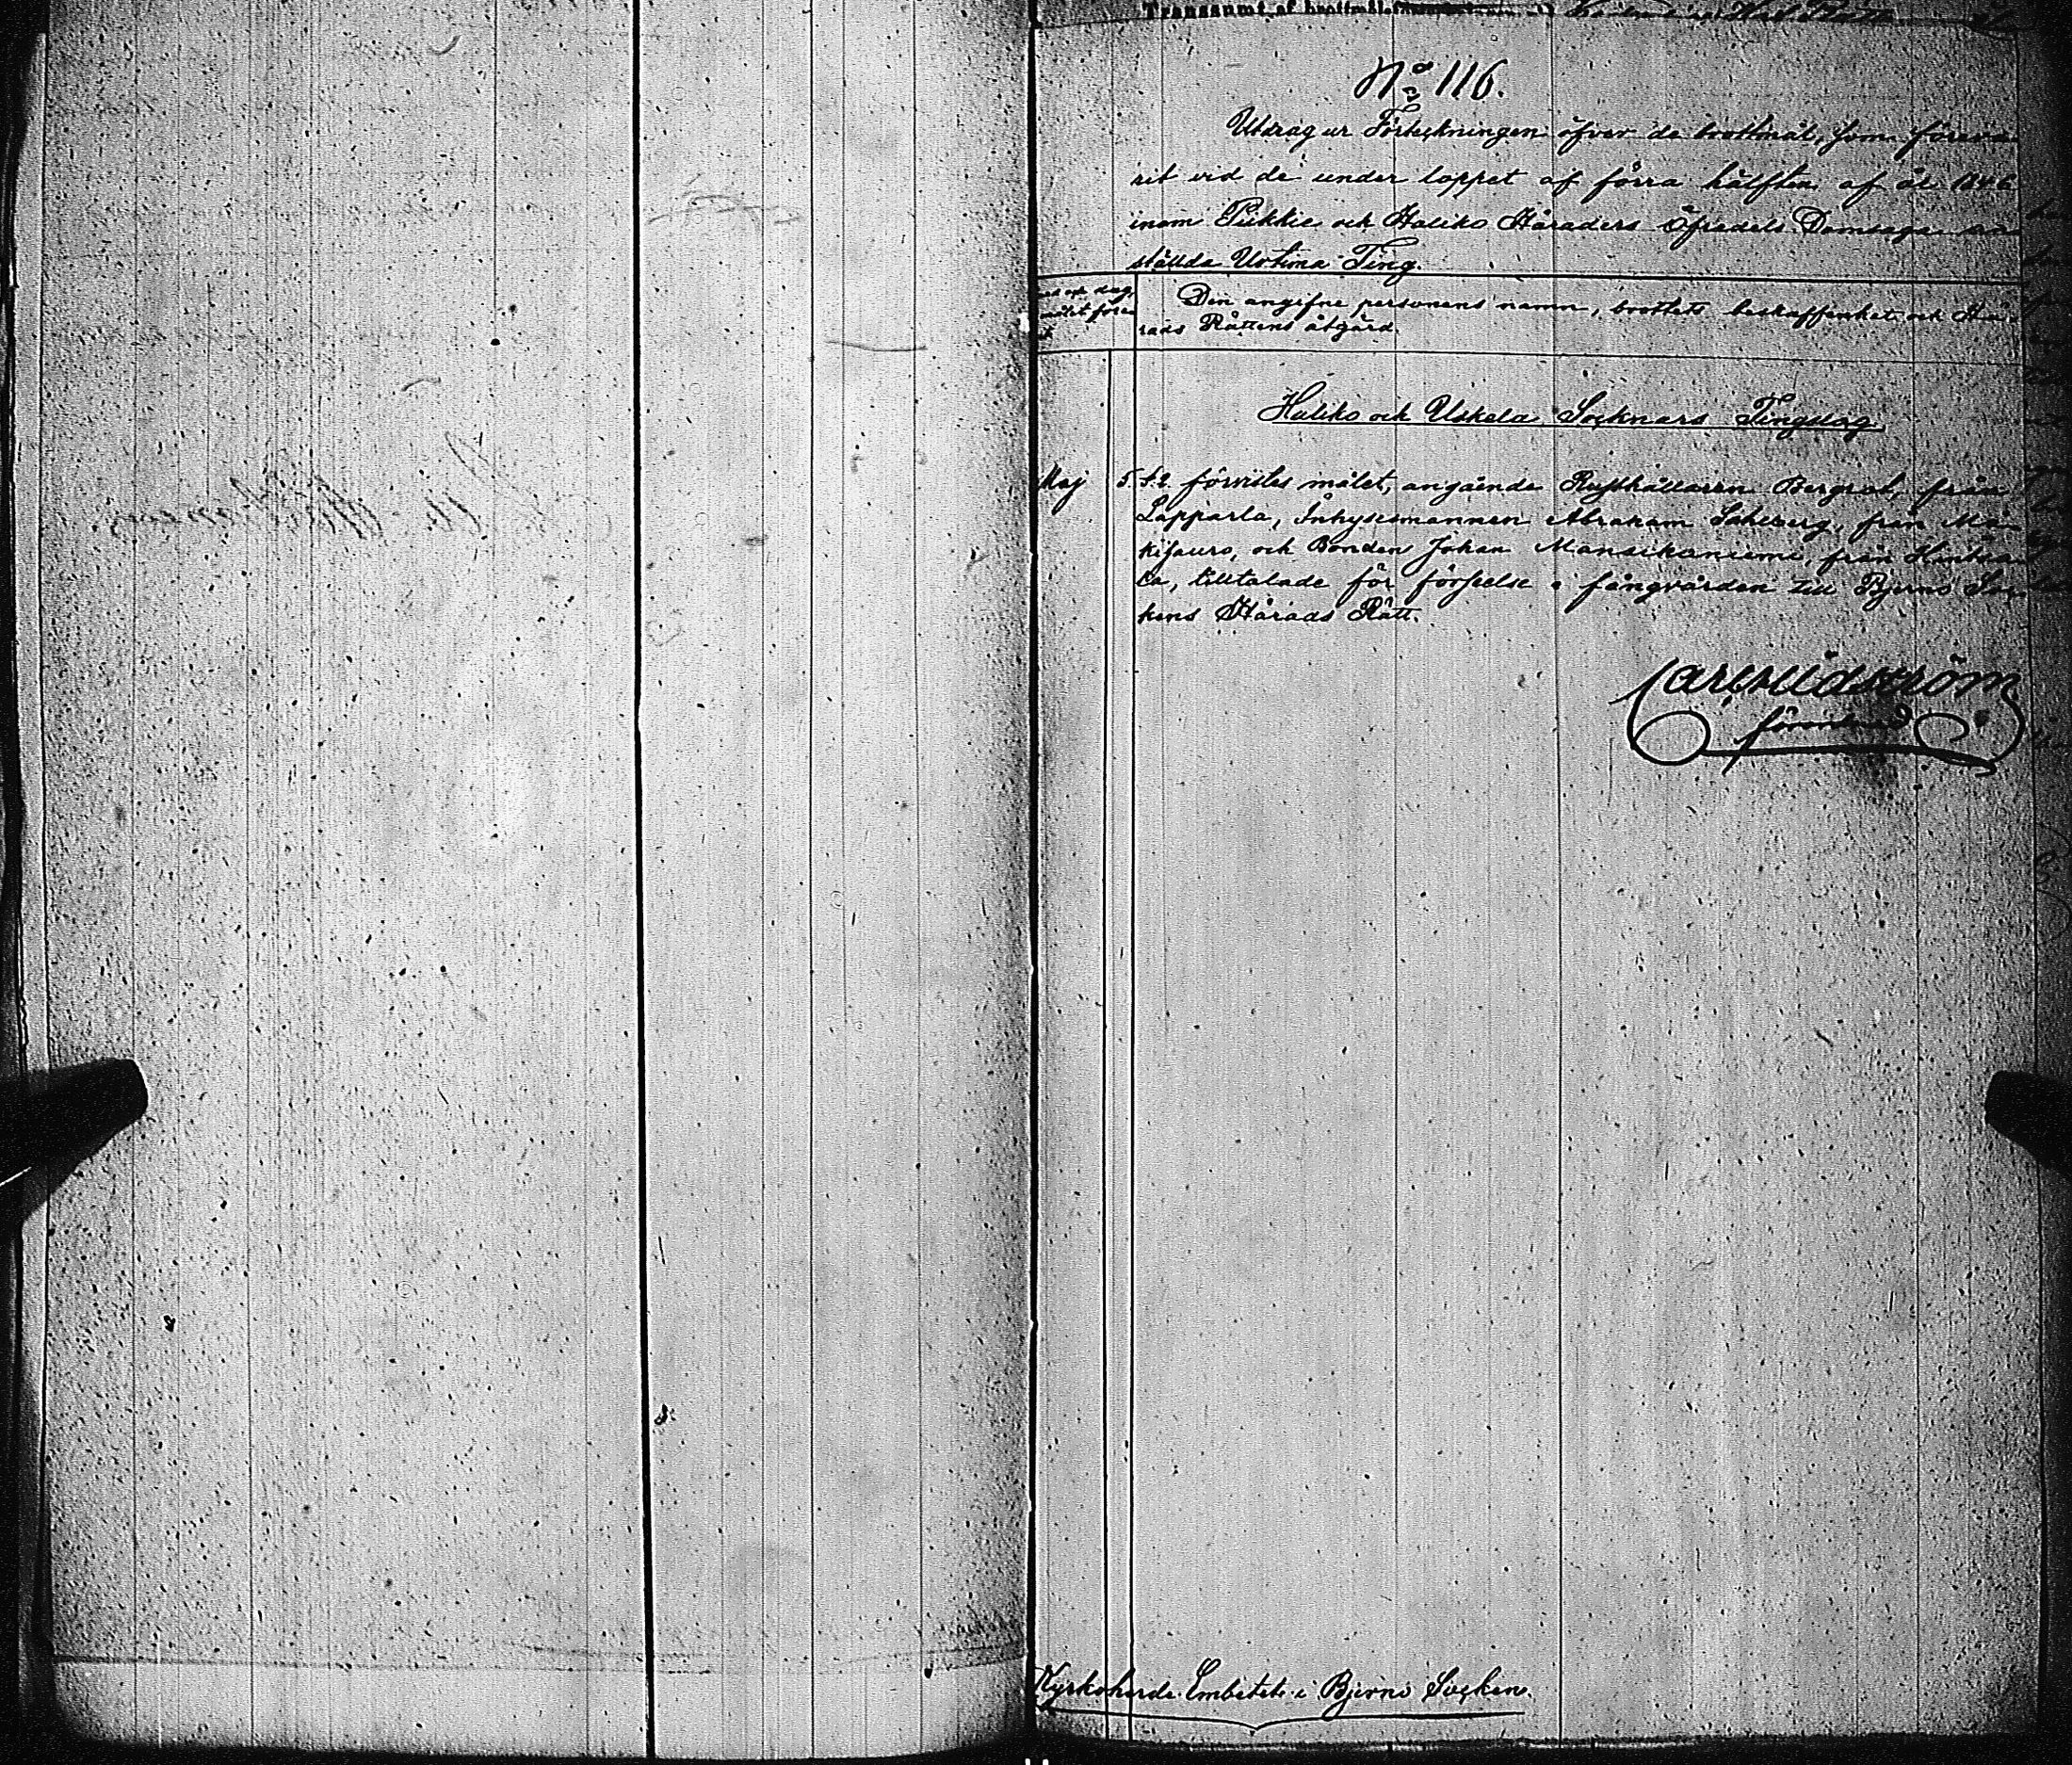 Transsumt af brottmåls
No 116.
Utdrag ur Förteckningen öfver de brottmål, som föreva
rit vid de under loppet af förra hälften af år 1846
inom Piikkie och Haliko Häraders Öfredels Domsaga an
ställda Urtima Ting.
och dag,
målet före
Den angifne personens namn, brottets beskaffenhet och Hä
rads Rättens åtgärd.
Haliko och Uskela Socknars Tingslag.
Maj 5. §.2. förvistes målet, angående Rusthållaren Bergrot, från
Lapparla, Inhysesmannen Abraham Sahlberg, från Mä
kisauro, och Bonden Johan Mansikaniemi, från
ka, tilltalade för förseelse i fångvården till Bjerno Soc
kens Härads Rätt.
Carl Widström
förordnad
Kyrkoherde Embetet i Bjerno Socken.